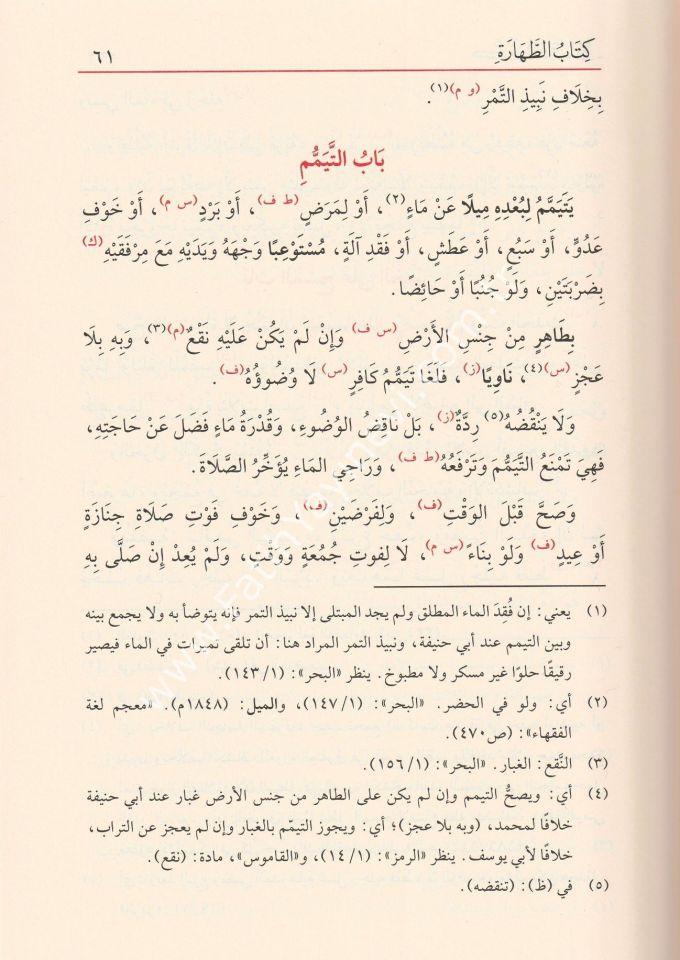 كِتَابُ الطَّهَارَةِ ٦١
بِخِلَافِ نَبِيذِ التَّمْرِ (و م)(١).
بَابُ التَّيَمُّمِ
يَتَيَمَّمُ لِبُعْدِهِ مِيلًا عَنْ مَاءٍ(٢)، أَوْ لِمَرَضٍ (ط ف)، أَوْ بَرْدٍ (س م)، أَوْ خَوْفِ
عَدُوٍّ، أَوْ سَبُعٍ، أَوْ عَطَشٍ، أَوْ فَقْدِ آلَةٍ، مُسْتَوْعِبًا وَجْهَهُ وَيَدَيْهِ مَعَ مِرْفَقَيْهِ (ك)
بِضَرْبَتَيْنِ، وَلَوْ جُنُبًا أَوْ حَائِضًا.
بِطَاهِرٍ مِنْ جِنْسِ الأَرْضِ (س ف) وَإِنْ لَمْ يَكُنْ عَلَيْهِ نَقْعٌ (م)(٣)، وَبِهِ بِلَا
عَجْزٍ (س)(٤)، نَاوِيًا (ز)، فَلَغَا تَيَمُّمُ كَافِرٍ (س) لَا وُضُوؤُهُ (ف).
وَلَا يَنْقُضُهُ(٥) رِدَّةٌ (ز)، بَلْ نَاقِضُ الوُضُوءِ، وَقُدْرَةُ مَاءٍ فَضَلَ عَنْ حَاجَتِهِ،
فَهِيَ تَمْنَعُ التَّيَمُّمَ وَتَرْفَعُهُ (ط ف)، وَرَاجِي المَاءِ يُؤَخِّرُ الصَّلَاةَ.
وَصَحَّ قَبْلَ الوَقْتِ (ف)، وَلِفَرْضَيْنِ (ف)، وَخَوْفِ فَوْتِ صَلَاةِ جِنَازَةٍ
أَوْ عِيدٍ (ف) وَلَوْ بِنَاءً (س م)، لَا لِفوتِ جُمُعَةٍ وَوَقْتٍ، وَلَمْ يُعِدْ إِنْ صَلَّى بِهِ
(١) يعني: إن فُقِدَ الماء المطلق ولم يجد المبتلى إلا نبيذ التمر فإنه يتوضأ به ولا يجمع بينه
وبين التيمم عند أبي حنيفة، ونبيذ التمر المراد هنا: أن تلقى تميرات في الماء فيصير
رقيقًا حلوًا غير مسكر ولا مطبوخ. ينظر «البحر»: (١/ ١٤٣).
(٢) أي: ولو في الحضر. «البحر»: (١/ ١٤٧)، والميل: (١٨٤٨م). «معجم لغة
الفقهاء»: (ص٤٧٠).
(٣) النَّقع: الغبار. «البحر»: (١/ ١٥٦).
(٤) أي: ويصحُّ التيمم وإن لم يكن على الطاهر من جنس الأرض غبار عند أبي حنيفة
خلافًا لمحمد، (وبه بلا عجز)؛ أي: ويجوز التيمّم بالغبار وإن لم يعجز عن التراب،
خلافًا لأبي يوسف. ينظر «الرمز»: (١/ ١٤)، و«القاموس»، مادة: (نقع).
(٥) في (ظ): (تنقضه).